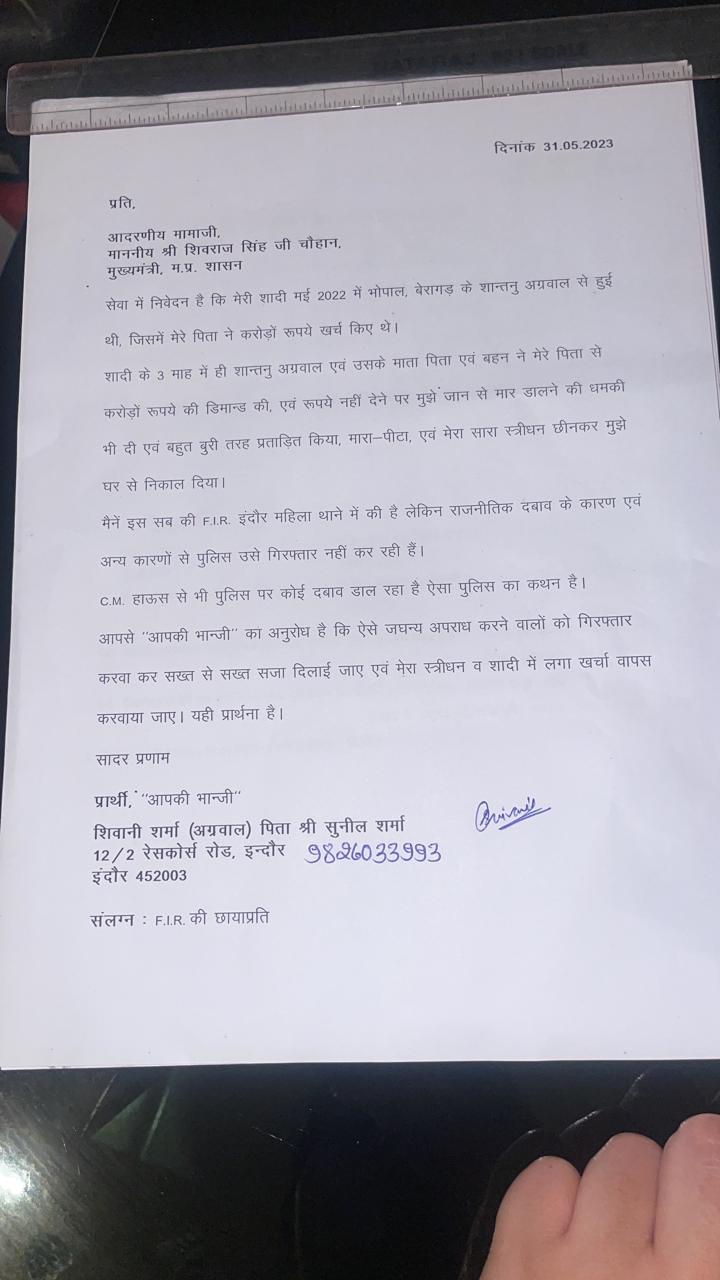 दिनांक 31.05.2023
प्रति,
आदरणीय मामाजी,
माननीय श्री शिवराज सिंह जी चौहान,
मुख्यमंत्री, म.प्र. शासन
सेवा में निवेदन है कि मेरी शादी मई 2022 में भोपाल, बेरागड़ के शान्तनु अग्रवाल से हुई
थी, जिसमें मेरे पिता ने करोड़ों रूपये खर्च किए थे।
शादी के 3 माह में ही शान्तनु अग्रवाल एवं उसके माता पिता एवं बहन ने मेरे पिता से
करोड़ों रूपये की डिमान्ड की, एवं रूपये नहीं देने पर मुझे जान से मार डालने की धमकी
भी दी एवं बहुत बुरी तरह प्रताड़ित किया, मारा–पीटा, एवं मेरा सारा स्त्रीधन छीनकर मुझे
घर से निकाल दिया।
मैनें इस सब की F.I.R. इंदौर महिला थाने में की है लेकिन राजनीतिक दबाव के कारण एवं
अन्य कारणों से पुलिस उसे गिरफ्तार नहीं कर रही हैं।
C.M. हाऊस से भी पुलिस पर कोई दबाव डाल रहा है ऐसा पुलिस का कथन है।
आपसे "आपकी भान्जी" का अनुरोध है कि ऐसे जघन्य अपराध करने वालों को गिरफ्तार
करवा कर सख्त से सख्त सजा दिलाई जाए एवं मेरा स्त्रीधन व शादी में लगा खर्चा वापस
करवाया जाए। यही प्रार्थना है।
सादर प्रणाम
प्रार्थी, "आपकी भान्जी"
शिवानी शर्मा (अग्रवाल) पिता श्री सुनील शर्मा
12/2 रेसकोर्स रोड, इन्दौर 9826033993
इंदौर 452003
संलग्न : F.I.R. की छायाप्रति